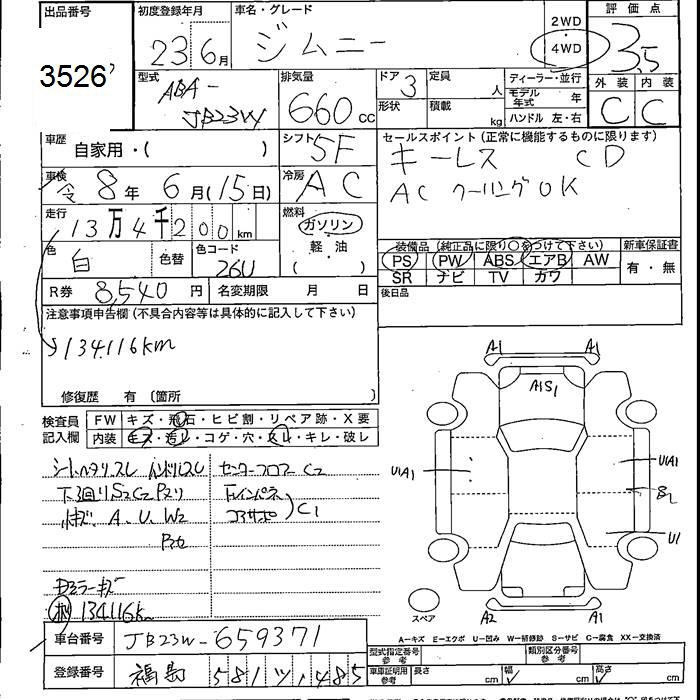 出品番号 初度登録年月 車名・グレード 評価点
3526 23 6月 ジムニー 2WD ・ 4WD 3.5
型式 ABA-JB23W 排気量 660 cc ドア 3 形状 定員 人 積載 kg ディーラー・並行 モデル年式 年 ハンドル 左・右 外装 C 内装 C
車歴 自家用・( ) シフト 5F セールスポイント(正常に機能するものに限ります)
車検 令8年 6月(15日) 冷房 AC キーレス CD
走行 13万4千200km 燃料 ガソリン・軽油 ( ) AC クーリングOK
色 白 色替 色コード 26U 装備品(純正品に限り○をつけて下さい) 新車保証書
PS PW ABS エアB AW 有・無
SR ナビ TV カワ
R券 8,540円 名変期限 月 日 後日品
注意事項申告欄(不具合内容等は具体的に記入して下さい)
134116km
修復歴 有 (箇所 )
検査員記入欄 FW キズ・飛石・ヒビ割・リペア跡・X要
内装 キズ・汚レ・コゲ・穴・スレ・キレ・破レ
シートヘタリスレ ハンドルスレ センターフロアーC2
下廻りS2C2P2リ
A、U、W2 C1
134116km
車台番号 JB23W-659371
登録番号 福島 581 485
A1 A1
A1S1
U1A1 U1A1
B2
U1
スペア A2 A1
A－キズ E－エクボ U－凹み W－補修跡 S－サビ C－腐食 XX－交換済
型式指定番号 参考 類別区分番号 参考
車庫証明用 参考 長さ cm 幅 cm 高さ cm